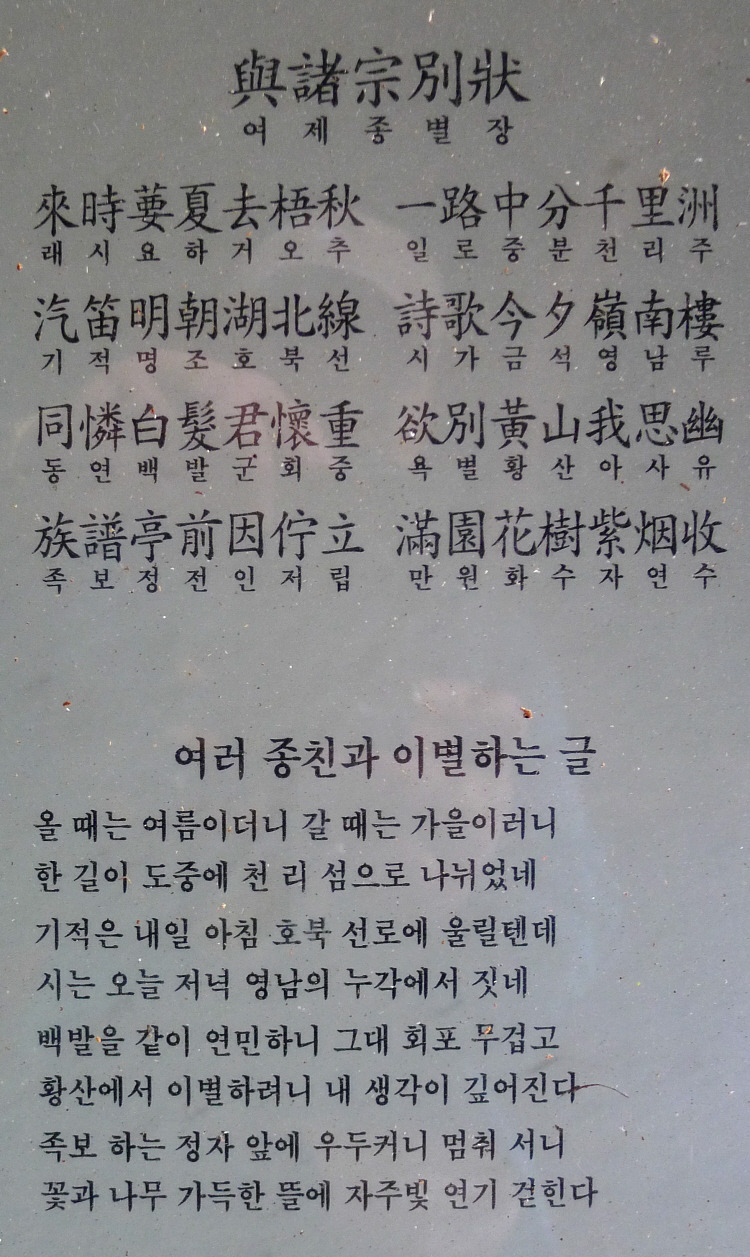 與諸宗別狀
여 제 종 별 장
來時葽夏去梧秋 一路中分千里洲
래 시 요 하 거 오 추 일 로 중 분 천 리 주
汽笛明朝湖北線 詩歌今夕嶺南樓
기 적 명 조 호 북 선 시 가 금 석 영 남 루
同憐白髮君懷重 欲別黃山我思幽
동 연 백 발 군 회 중 욕 별 황 산 아 사 유
族譜亭前因佇立 滿園花樹紫烟收
족 보 정 전 인 저 립 만 원 화 수 자 연 수
여러 종친과 이별하는 글
올 때는 여름이더니 갈 때는 가을이러니
한 길이 도중에 천 리 섬으로 나뉘었네
기적은 내일 아침 호북 선로에 울릴텐데
시는 오늘 저녁 영남의 누각에서 짓네
백발을 같이 연민하니 그대 회포 무겁고
황산에서 이별하려니 내 생각이 깊어진다
족보 하는 정자 앞에 우두커니 멈춰 서니
꽃과 나무 가득한 뜰에 자주빛 연기 걷힌다